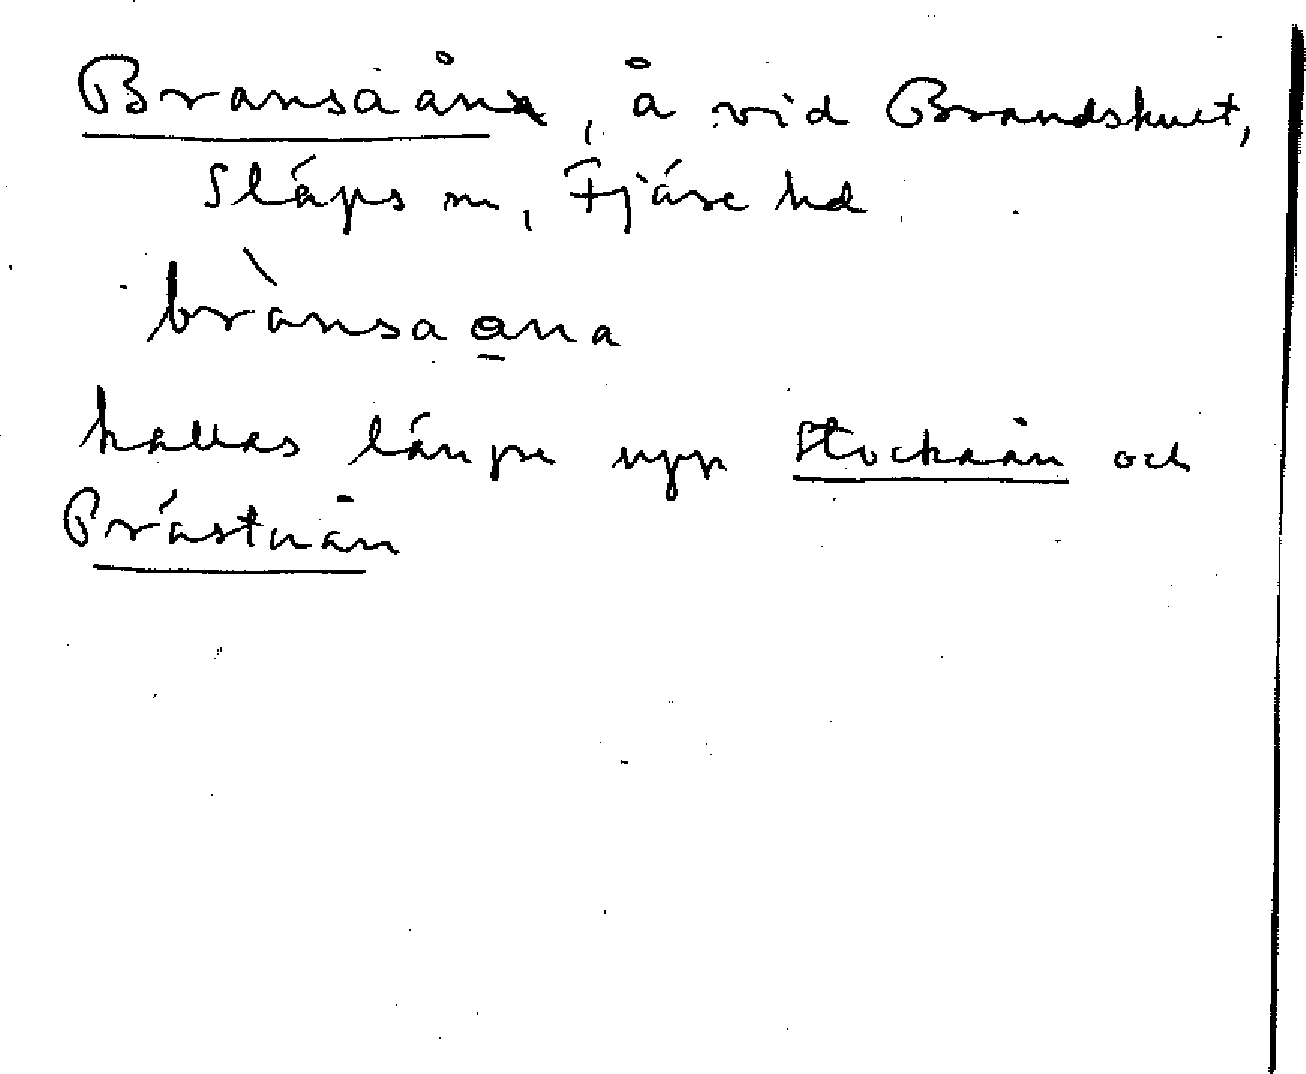 Bransaån, å vid Brandshult,
Släps sn, Fjäre hd
brànsaana
kallas längre upp Stockaån och
Prästaån